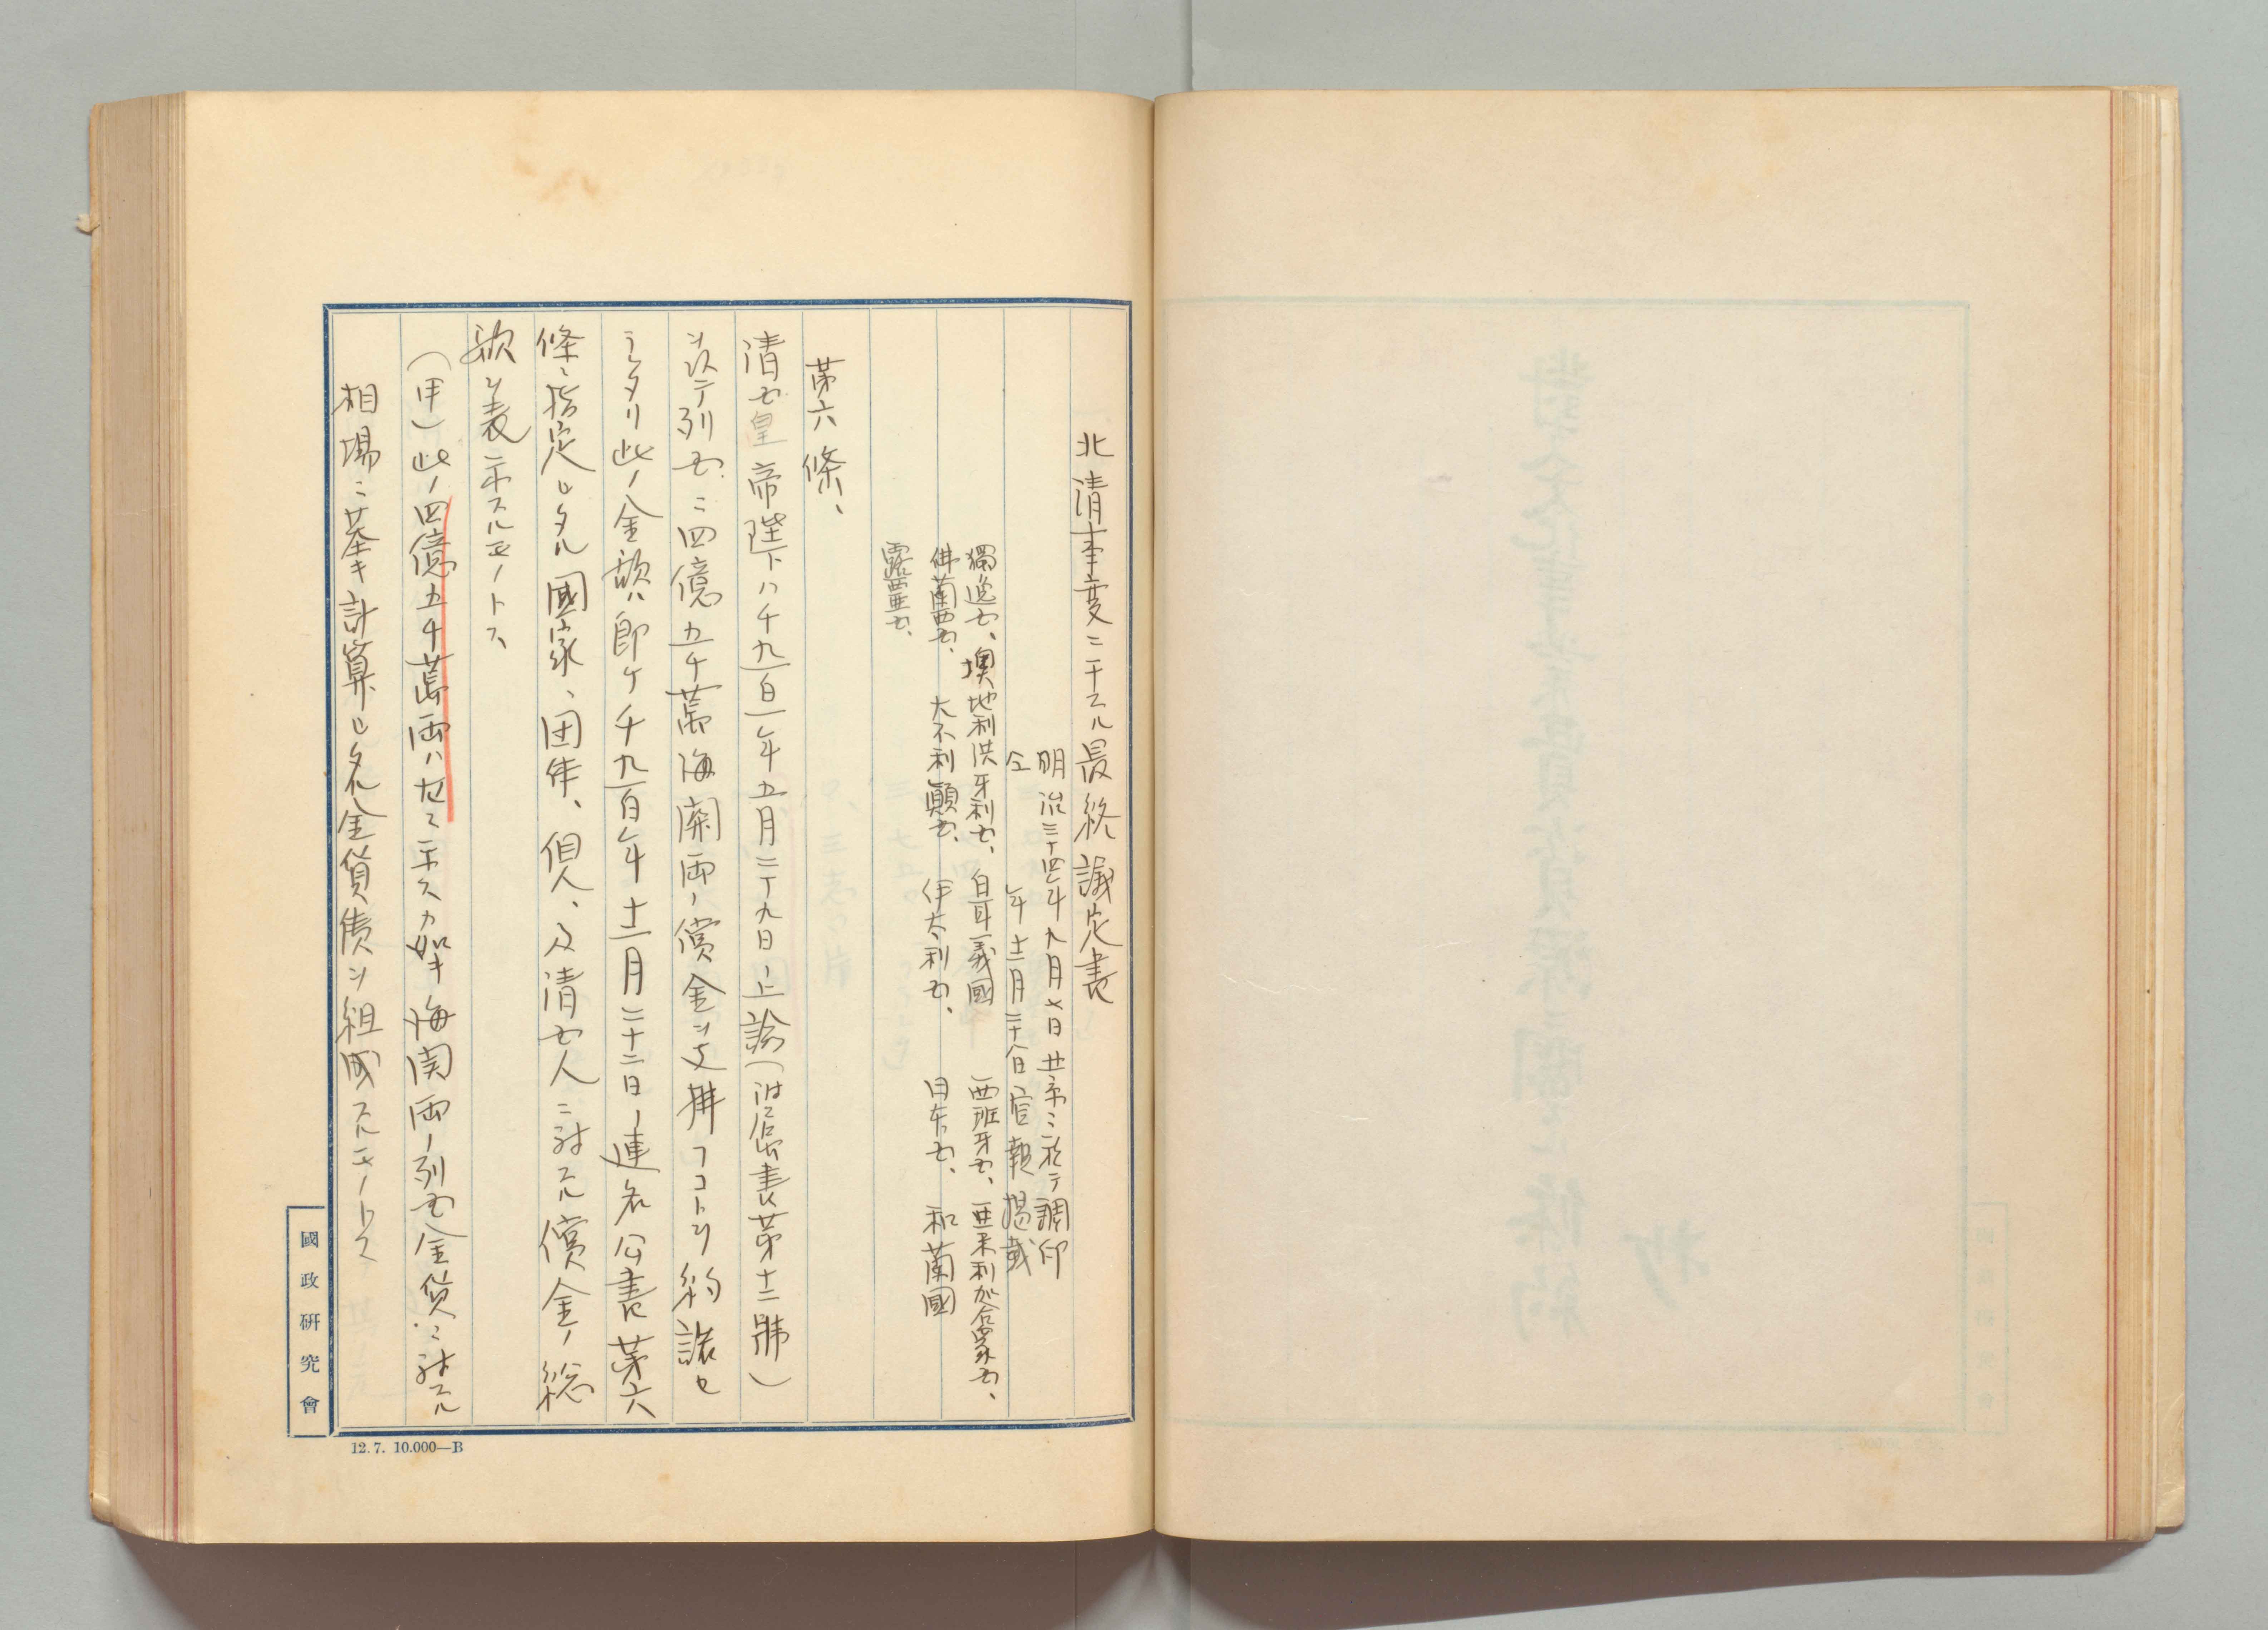 北清事変ニ干スル最終議定書
明治三十四年九月七日北京ニ於テ調印
仝　年十二月二十八日官報掲載
獨逸国、墺地利洪牙利国、白耳義國　西班牙国、亜米利加合衆国、
佛蘭西国、大不利顛国、伊太利国、日本国、和蘭國
露西亜国、
第六條、
清国皇帝陛下ハ千九百一年五月二十九日ノ上諭（附属書第十二號）
ヲ以テ列国ニ四億五千萬海關両ノ償金ヲ支拂フコトヲ約諾セ
ラレタリ此ノ金額ハ即ケ千九百年十二月二十二日ノ連名公書第六
條ニ指定セタル國家、団体、個人、及清国人ニ対スル償金ノ総
額ヲ表示スルモノトス、
（甲）此ノ四億五千萬両ハ左ニ示スカ如キ海関両ノ列国金貨ニ対スル
相場ニ基キ計算セタル金貨債ヲ組成スルモノトス
國政研究會
12.7. 10.000—B